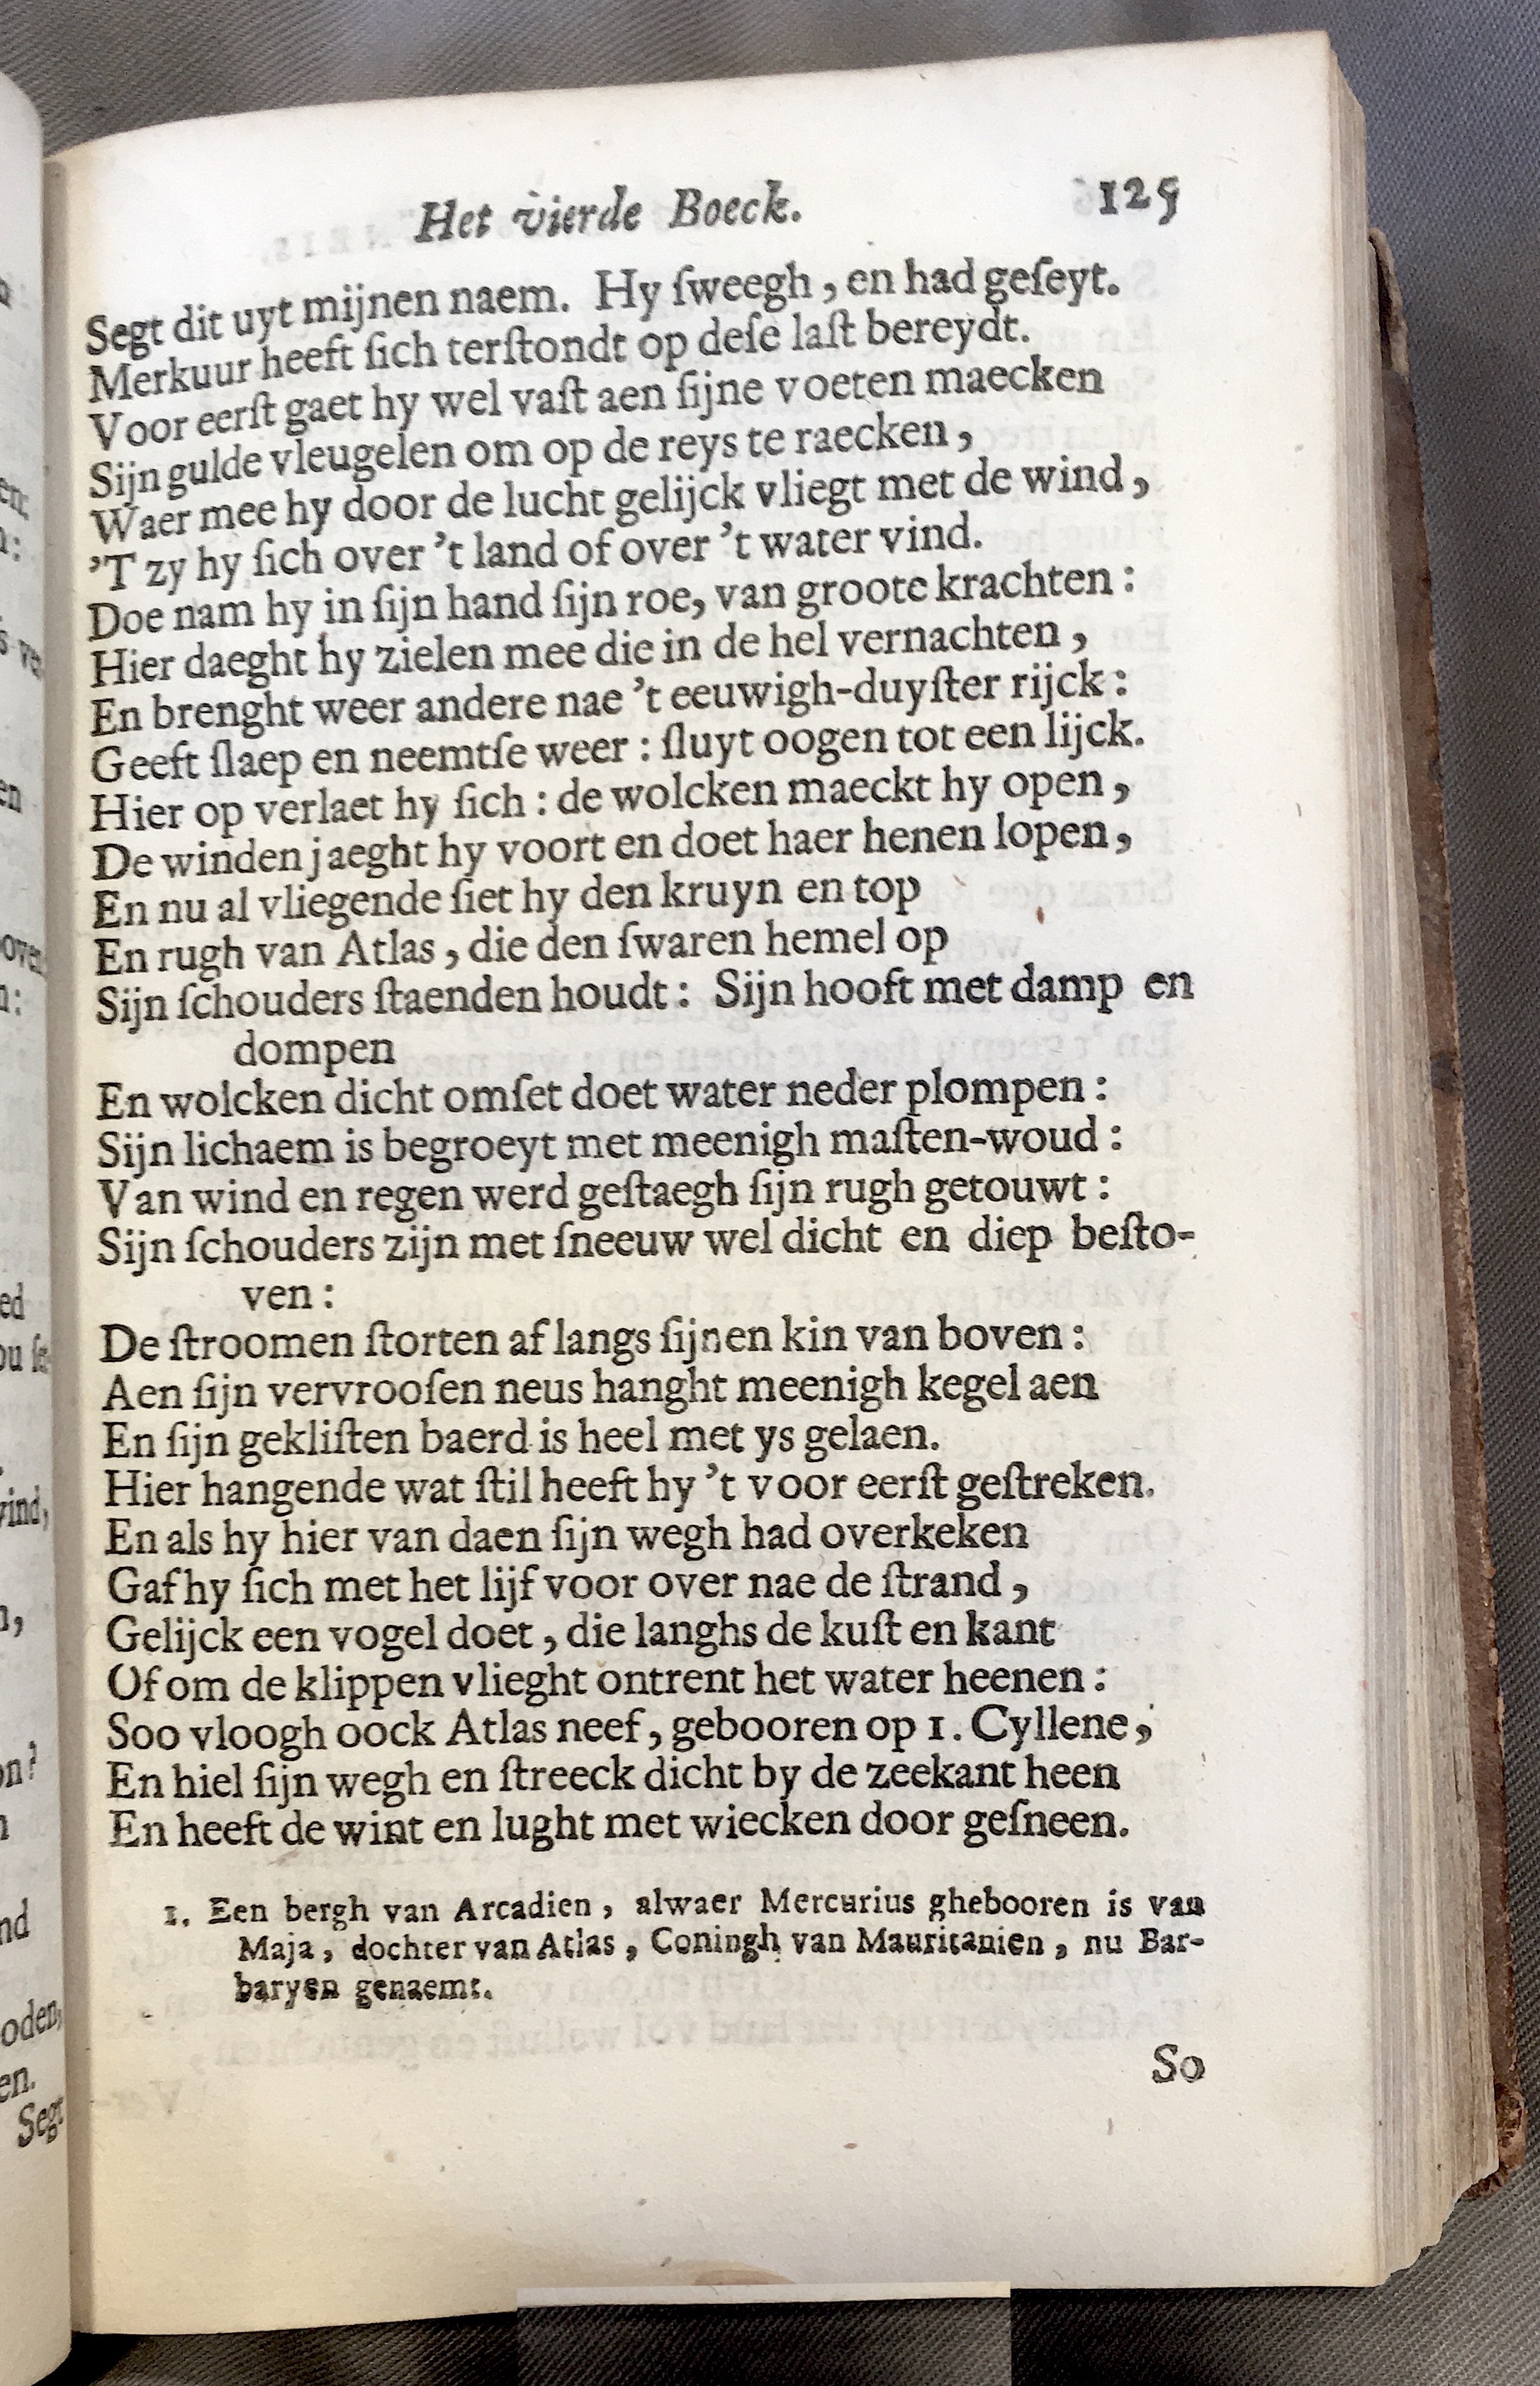 Het vierde Boeck. 125
Segt dit uyt mijnen naem. Hy ſweegh, en had geſeyt.
Merkuur heeft ſich terſtondt op deſe laſt bereydt.
Voor eerſt gaet hy wel vaſt aen ſijne voeten maecken
Sijn gulde vleugelen om op de reys te raecken,
Waer mee hy door de lucht gelijck vliegt met de wind,
'T zy hy ſich over 't land of over 't water vind.
Doe nam hy in ſijn hand ſijn roe, van groote krachten:
Hier daeght hy zielen mee die in de hel vernachten,
En brenght weer andere nae 't eeuwigh-duyſter rijck:
Geeft ſlaep en neemtſe weer: ſluyt oogen tot een lijck.
Hier op verlaet hy ſich: de wolcken maeckt hy open,
De winden jaeght hy voort en doet haer henen lopen,
En nu al vliegende ſiet hy den kruyn en top
En rugh van Atlas, die den ſwaren hemel op
Sijn ſchouders ſtaenden houdt: Sijn hooft met damp en
dompen
En wolcken dicht omſet doet water neder plompen:
Sijn lichaem is begroeyt met meenigh maſten-woud:
Van wind en regen werd geſtaegh ſijn rugh getouwt:
Sijn ſchouders zijn met ſneeuw wel dicht en diep beſto-
ven:
De ſtroomen ſtorten af langs ſijnen kin van boven:
Aen ſijn vervrooſen neus hanght meenigh kegel aen
En ſijn gekliſten baerd is heel met ys gelaen.
Hier hangende wat ſtil heeft hy 't voor eerſt geſtreken.
En als hy hier van daen ſijn wegh had overkeken
Gaf hy ſich met het lijf voor over nae de ſtrand,
Gelijck een vogel doet, die langhs de kuſt en kant
Of om de klippen vlieght ontrent het water heenen:
Soo vloogh oock Atlas neef, gebooren op 1. Cyllene,
En hiel ſijn wegh en ſtreeck dicht by de zeekant heen
En heeft de wint en lught met wiecken door geſneen.
1. Een bergh van Arcadien, alwaer Mercurius ghebooren is van
Maja, dochter van Atlas, Coningh van Mauritanien, nu Bar-
baryen genaemt.
So